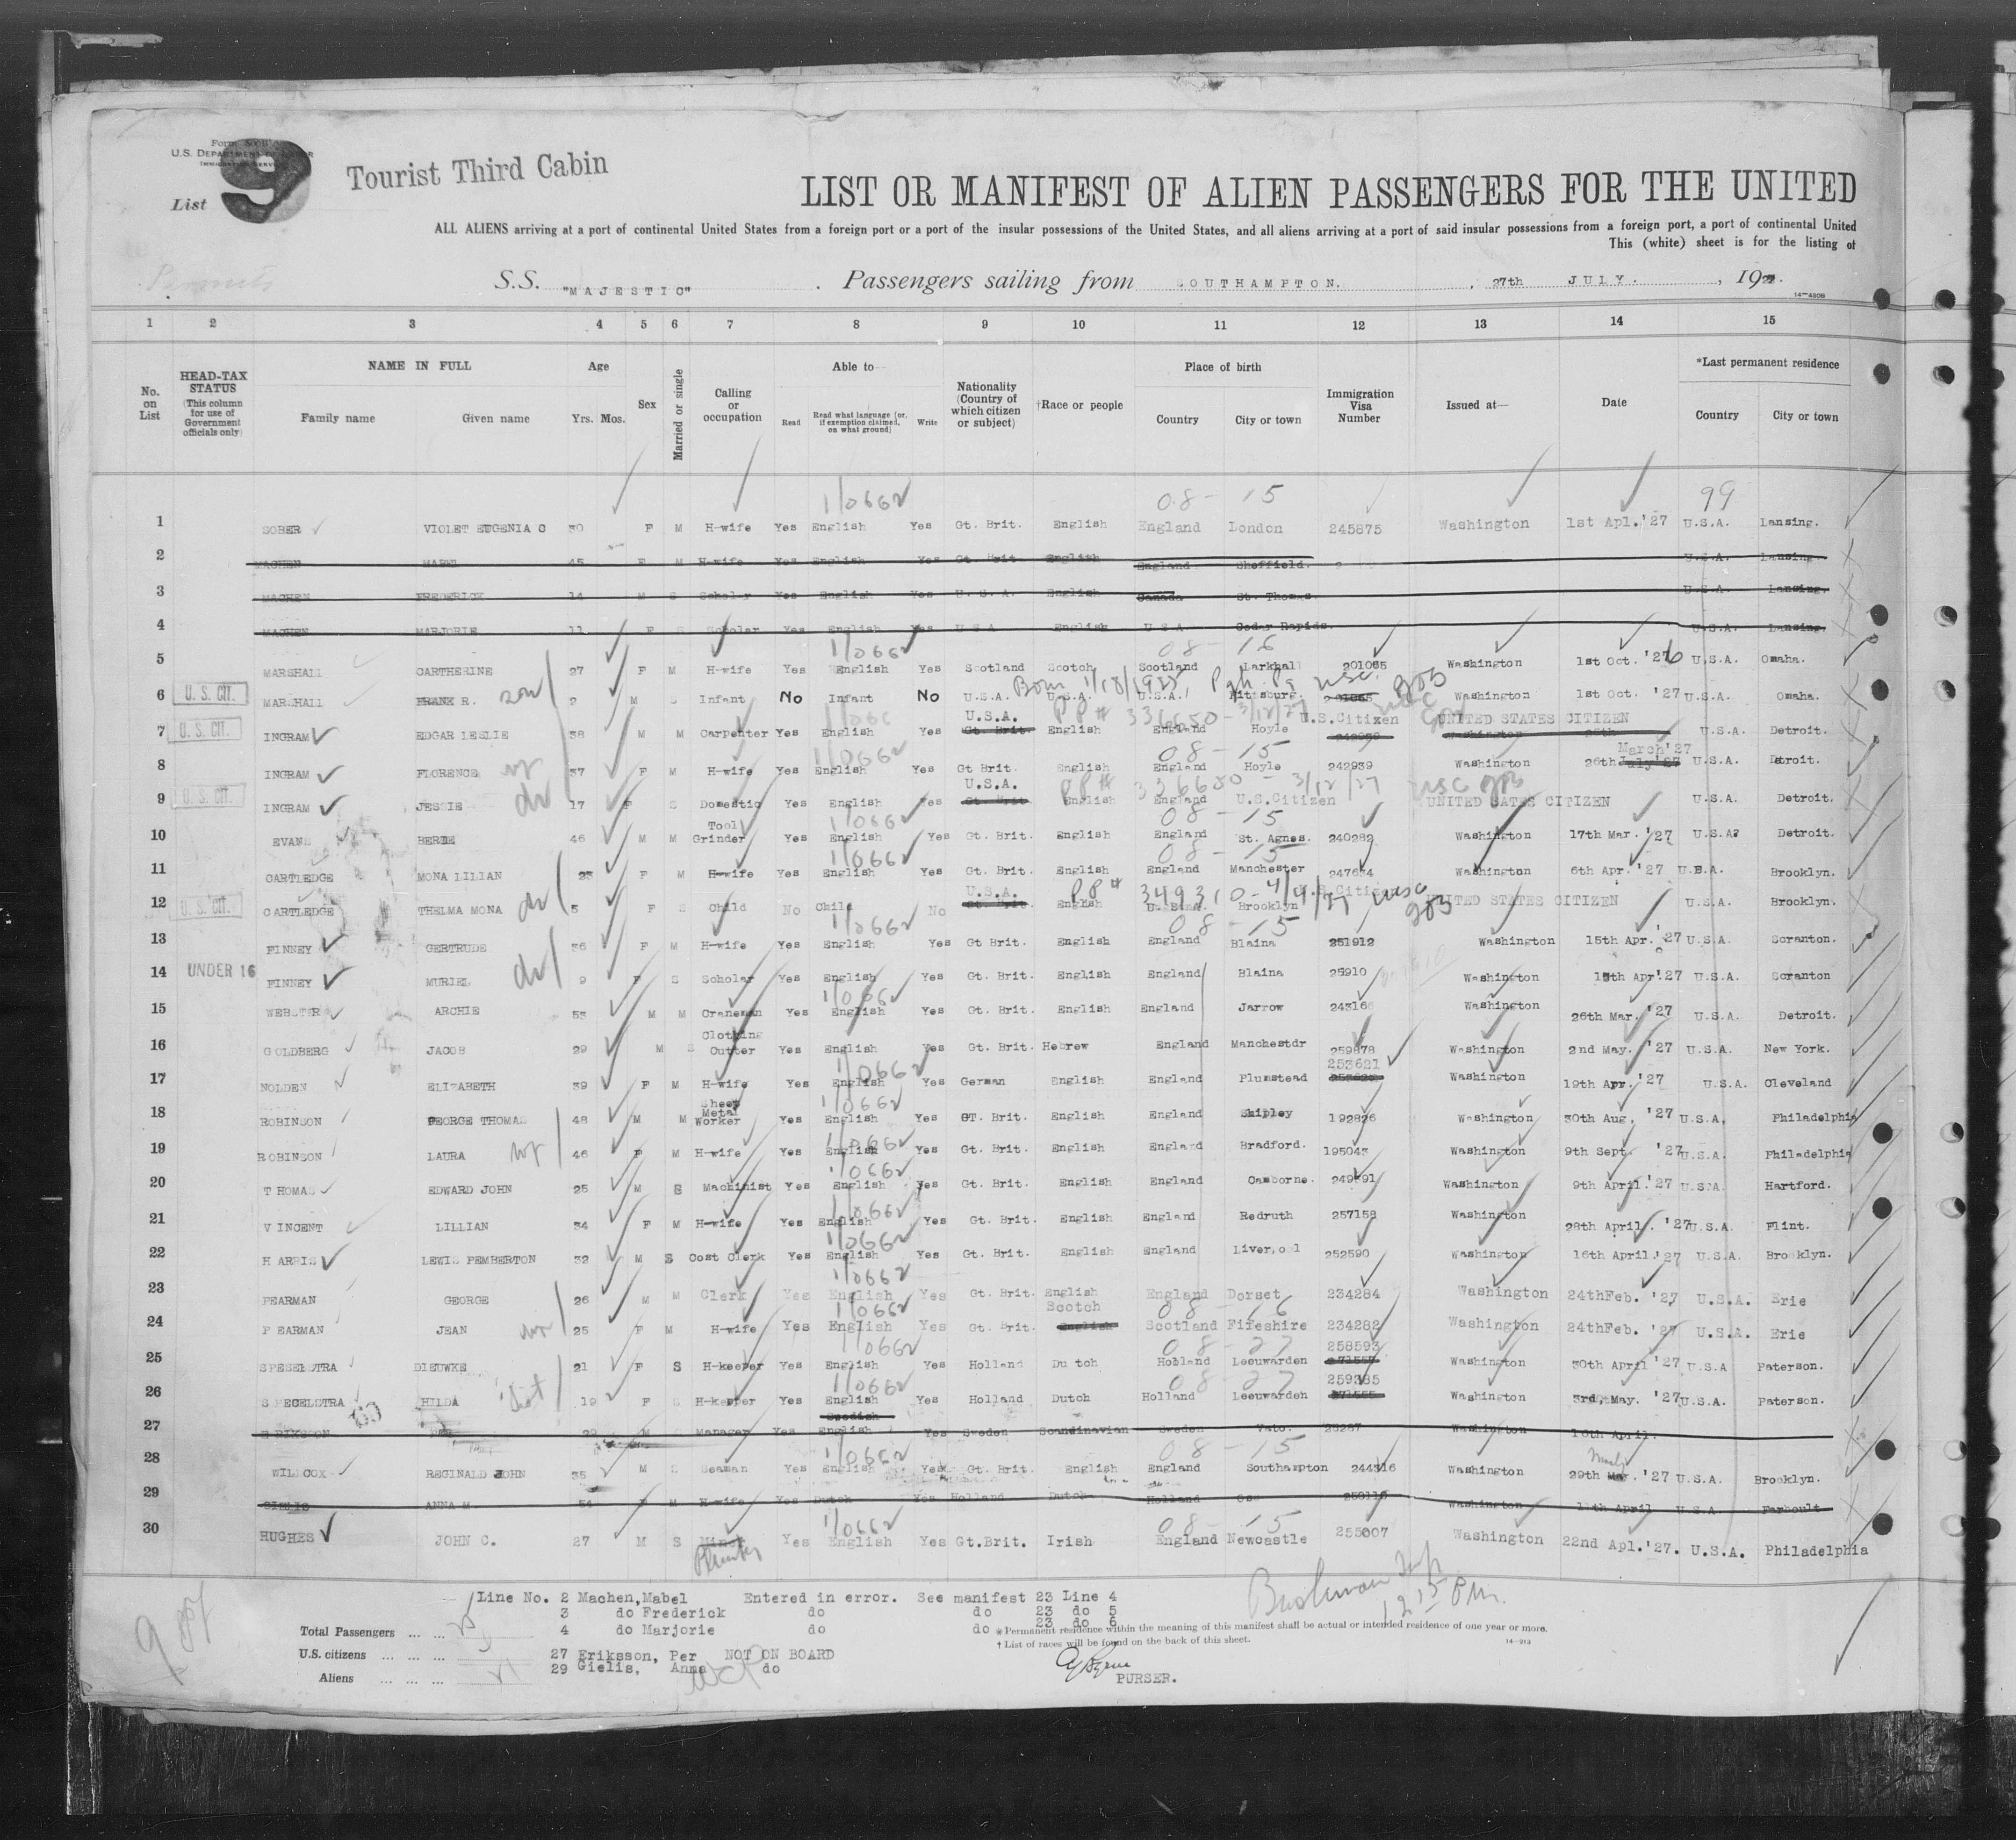 Form 500
U.S. DEPARTMENT OF LABOR
IMMIGRATION SERVICE
List 9
Tourist Third Cabin
LIST OR MANIFEST OF ALIEN PASSENGERS FOR THE UNITED
ALL ALIENS arriving at a port of continental United States from a foreign port or a port of the insular possessions of the United States, and all aliens arriving at a port of said insular possessions from a foreign port, a port of continental United
This (white) sheet is for the listing of
S.S. "MAJESTIC" . Passengers sailing from SOUTHAMPTON. , 27th JULY. , 1927.
14—480B
1 2 3 4 5 6 7 8 9 10 11 12 13 14 15
No. on List
HEAD-TAX STATUS (This column for use of Government officials only)
NAME IN FULL Family name Given name
Age Yrs. Mos.
Sex
Married or single
Calling or occupation
Able to— Read Read what language [or, if exemption claimed, on what ground] Write
Nationality (Country of which citizen or subject)
†Race or people
Place of birth Country City or town
Immigration Visa Number
Issued at—
Date
*Last permanent residence Country City or town
1/0662 08 - 15 99
1 SOBER VIOLET EUGENIA C 30 F M H-wife Yes English Yes Gt. Brit. English England London 245875 Washington 1st Apl.'27 U.S.A. Lansing.
2 MACHEN MABEL 45 F M H-wife Yes English Yes Gt Brit English England Sheffield. U.S.A. Lansing.
3 MACHEN FREDERICK 14 M S Scholar Yes English Yes U.S.A. English Canada St. Thomas. U.S.A. Lansing.
4 MACHEN MARJORIE 11 F S Scholar Yes English Yes U S A English U S A Cedar Rapids. U.S.A. Lansing.
1/0662 08 - 16
5 MARSHALL CARTHERINE 27 F M H-wife Yes English Yes Scotland Scotch Scotland Larkhall 201065 Washington 1st Oct. '26 U.S.A. Omaha.
Born 1/18/1925 Pgh Pa USC
6 U. S. CIT. MARSHALL FRANK R. son 2 M S Infant No Infant No U.S.A. U.S.A. U.S.A. Pittsburg. Washington 1st Oct. '27 U.S.A. Omaha.
U.S.A. PP# 336650 - 3/12/27 U.S.Citizen UNITED STATES CITIZEN
7 U. S. CIT. INGRAM EDGAR LESLIE 38 M M Carpenter Yes English Yes Gt. Brit. English England Hoyle 242939 Washington 26th U.S.A. Detroit.
1/0662 08 - 15 March'27
8 INGRAM FLORENCE wf 37 F M H-wife Yes English Yes Gt Brit. English England Hoyle 242939 Washington 26th July'27 U.S.A. Detroit.
U.S.A. PP# 336650 - 3/12/27 USC
9 U. S. CIT. INGRAM JESSIE 17 F S Domestic Yes English Yes Gt Brit English England U.S.Citizen UNITED STATES CITIZEN U.S.A. Detroit.
Tool 1/0662 08 - 15
10 EVANS BERTIE 46 M M Grinder Yes English Yes Gt. Brit. English England St. Agnes. 240282 Washington 17th Mar. '27 U.S.A. Detroit.
1/0662 08 - 15
11 CARTLEDGE MONA LILIAN 25 F M H-wife Yes English Yes Gt. Brit. English England Manchester 247634 Washington 6th Apr. '27 U.S.A. Brooklyn.
U.S.A. PP# 349310 - 4/9/27 USC
12 U. S. CIT. CARTLEDGE THELMA MONA 5 F S Child No Child No Gt. Brit English U.S.A. Brooklyn UNITED STATES CITIZEN U.S.A. Brooklyn.
1/0662 08 - 15
13 FINNEY GERTRUDE 36 F M H-wife Yes English Yes Gt Brit. English England Blaina 251912 Washington 15th Apr. '27 U.S.A. Scranton.
14 UNDER 16 FINNEY MURIEL 9 F S Scholar Yes English Yes Gt. Brit. English England Blaina 25910 Washington 15th Apr.'27 U.S.A. Scranton
1/0662
15 WEBSTER ARCHIE 53 M M Craneman Yes English Yes Gt. Brit. English England Jarrow 243166 Washington 26th Mar. '27 U.S.A. Detroit.
Clothing
16 GOLDBERG JACOB 29 M S Cutter Yes English Yes Gt. Brit. Hebrew England Manchestdr 259878 Washington 2nd May. '27 U.S.A. New York.
1/0662 253621
17 NOLDEN ELIZABETH 39 F M H-wife Yes English Yes German English England Plumstead Washington 19th Apr. '27 U.S.A. Cleveland
Sheet Metal 1/0662
18 ROBINSON GEORGE THOMAS 48 M M Worker Yes English Yes GT. Brit. English England Shipley 192826 Washington 30th Aug. '27 U.S.A, Philadelphia
1/0662
19 ROBINSON LAURA wf 46 F M H-wife Yes English Yes Gt. Brit. English England Bradford. 195045 Washington 9th Sept. '27 U.S.A. Philadelphia
1/0662
20 THOMAS EDWARD JOHN 25 M S Machinist Yes English Yes Gt. Brit. English England Camborne. 249491 Washington 9th April.'27 U.S.A. Hartford.
1/0662
21 VINCENT LILLIAN 34 F M H-wife Yes English Yes Gt. Brit. English England Redruth 257158 Washington 28th April. '27 U.S.A. Flint.
1/0662
22 HARRIS LEWIS PEMBERTON 32 M S Cost Clerk Yes English Yes Gt. Brit. English England Liverpool 252590 Washington 16th April.'27 U.S.A. Brooklyn.
1/0662
23 PEARMAN GEORGE 26 M M Clerk Yes English Yes Gt. Brit. English England Dorset 234284 Washington 24thFeb. '27 U.S.A. Erie
1/0662 Scotch 08 - 16
24 PEARMAN JEAN 25 F M H-wife Yes English Yes Gt. Brit. English Scotland Fifeshire 234282 Washington 24thFeb. '27 U.S.A. Erie
1/0662 08 - 27 258593
25 SPESELSTRA DIEUWKE 21 F S H-keeper Yes English Yes Holland Dutch Holland Leeuwarden 271557 Washington 30th April '27 U.S.A Paterson.
1/0662 08 - 27 259385
26 SPECELSTRA HILDA 19 F S H-kepper Yes English Yes Holland Dutch Holland Leeuwarden 271555 Washington 3rd, May. '27 U.S.A. Paterson.
Swedish
27 ERIKSSON PER 29 M Manager Yes English Yes Sweden Scandinavian Sweden Vato. 25287 Washington 16th April.
1/0662 08 - 15
28 WILLCOX REGINALD JOHN 35 M S Seaman Yes English Yes Gt. Brit. English England Southampton 244316 Washington 29th Mar. '27 U.S.A. Brooklyn.
29 GIELIS ANNA M. 54 F M H-wife Yes Dutch Yes Holland Dutch Holland Oss Washington April U.S.A. Farboult
1/0662 08 - 15
30 HUGHES JOHN C. 27 M S Miner Yes English Yes Gt.Brit. Irish England Newcastle 255007 Washington 22nd Apl.'27. U.S.A. Philadelphia
Plumber
Line No. 2 Machen,Mabel Entered in error. See manifest 23 Line 4
3 do Frederick do do 23 do 5
4 do Marjorie do do 23 do 6
Total Passengers ... ...
*Permanent residence within the meaning of this manifest shall be actual or intended residence of one year or more.
† List of races will be found on the back of this sheet.
14—213
U.S. citizens ... ... ...
27 Eriksson, Per NOT ON BOARD
Aliens ... ... ...
29 Gielis, Anna do
PURSER.